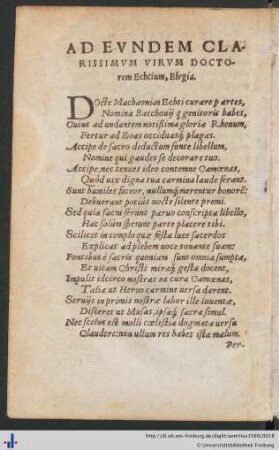 AD EVNDEM CLA-
RISSIMVM VIRVM DOCTO-
rem Echtium, Elegia.
DOcte Machaonias Echti curare partes,
Nomina Bacchouij q̃ genitoris habes,
Cuius ad undantem notißima gloria Rhenum,
Fertur ad Eoas occiduasq́; plagas.
Accipe de sacro deductum fonte libellum,
Nomine qui gaudet se decorare tuo.
Accipe, nec tenues ideo contemne Camœnas,
Quòd uix digna tua carmina laude ferant.
Sunt humiles fateor, nullumq́; merentur honorẽ:
Debuerant potiùs nocte silente premi.
Sed quia sacra ferunt paruo conscripta libello,
Hac solùm sperent parte placere tibi.
Scilicet in templo quæ festa luce sacerdos
Explicat ad plebem uoce tonante suam:
Fontibus è sacris quoniam sunt omnia sumpta,
Et uitam Christi miraq́; gesta docent,
Impulit idcirco nostras ea cura Camœnas,
Talia ut Heroo carmine uersa darent.
Seruijt in primis nostræ labor ille iuuentæ,
Disceret ut Musas, ipsaq́; sacra simul.
Nec scelus est molli cœlestia dogmata uersu
Claudere: non ullum res habet ista malum.
Per-
http://dl.ub.uni-freiburg.de/diglit/aemilius1560/0018
© Universitätsbibliothek Freiburg